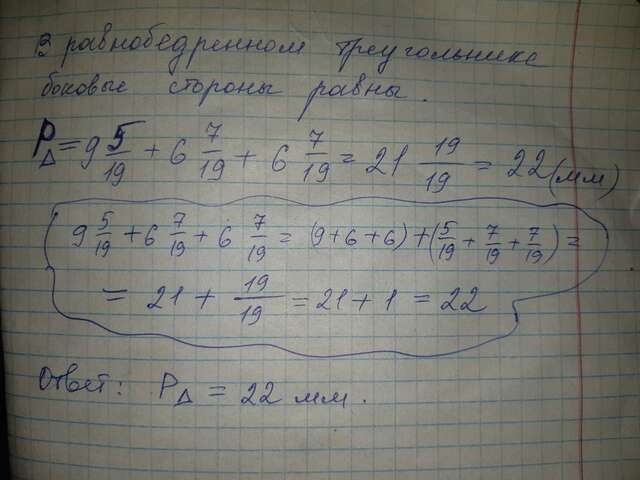 В равнобедренном треугольнике
боковые стороны равны.
P△ = 9 5/19 + 6 7/19 + 6 7/19 = 21 19/19 = 22 (мм)
9 5/19 + 6 7/19 + 6 7/19 = (9+6+6) + (5/19 + 7/19 + 7/19) =
= 21 + 19/19 = 21 + 1 = 22
Ответ: P△ = 22 мм.